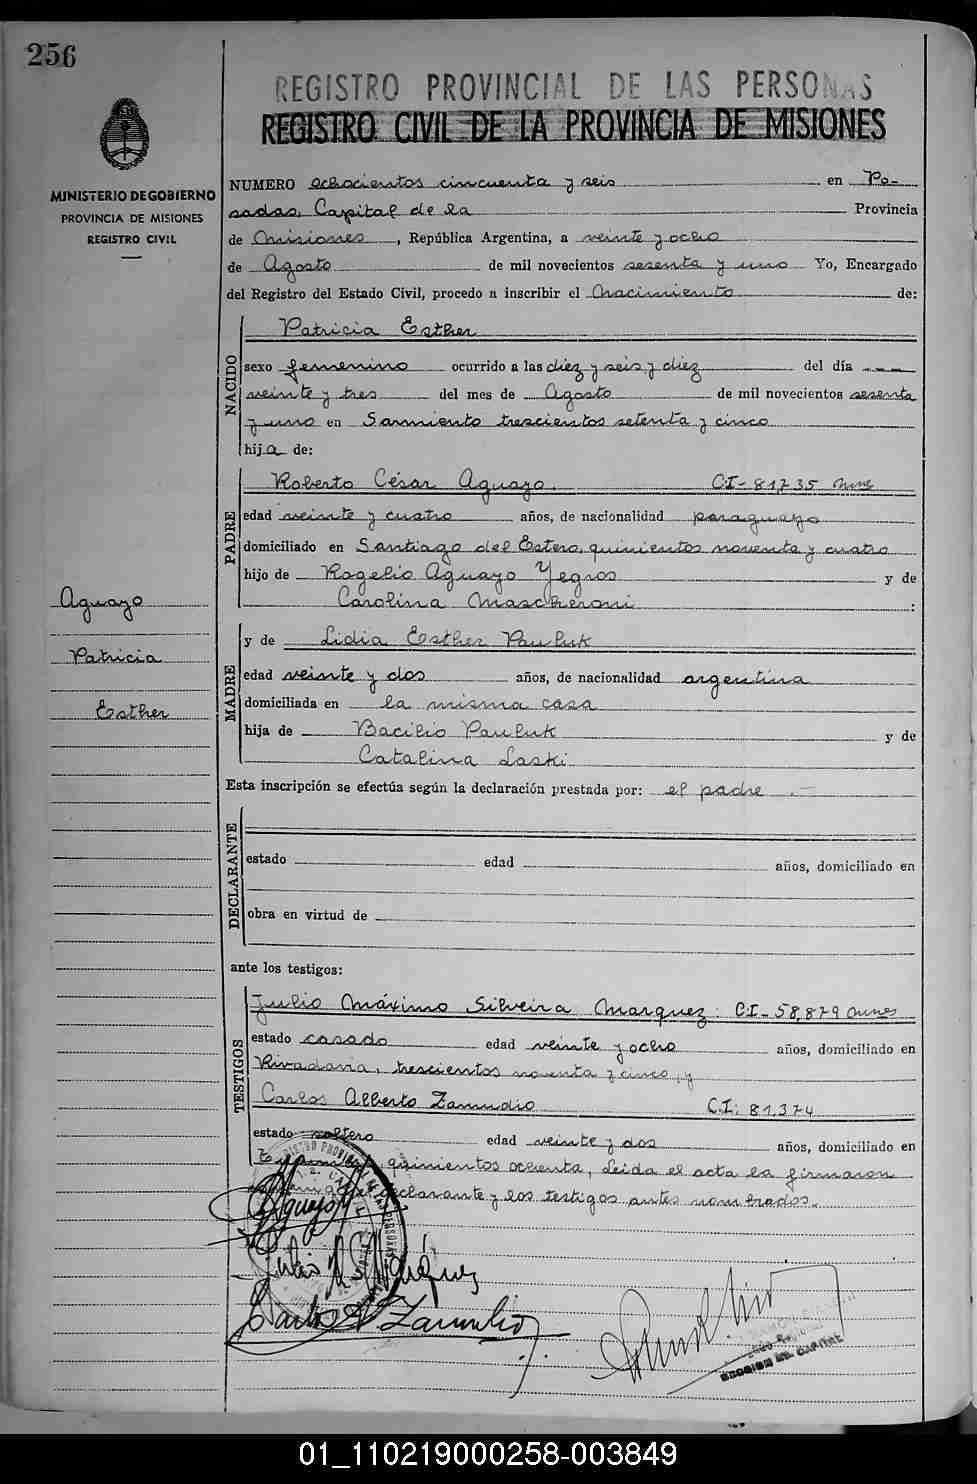 256
REGISTRO PROVINCIAL DE LAS PERSONAS
REGISTRO CIVIL DE LA PROVINCIA DE MISIONES
MINISTERIO DE GOBIERNO
PROVINCIA DE MISIONES
REGISTRO CIVIL
NUMERO ochocientos cincuenta y seis en Po-
sadas, Capital de la Provincia
de Misiones, República Argentina, a veinte y ocho
de Agosto de mil novecientos sesenta y uno Yo, Encargado
del Registro del Estado Civil, procedo a inscribir el Nacimiento de:
NACIDO
Patricia Esther
sexo femenino ocurrido a las diez y seis y diez del día
veinte y tres del mes de Agosto de mil novecientos sesenta
y uno en Sarmiento trescientos setenta y cinco
hija de:
PADRE
Roberto César Aguayo. CI-81735 Mnes
edad veinte y cuatro años, de nacionalidad paraguayo
domiciliado en Santiago del Estero, quinientos noventa y cuatro
hijo de Rogelio Aguayo Yegros y de
Carolina Mascheroni :
Aguayo
Patricia
Esther
MADRE
y de Lidia Esther Pauluk
edad veinte y dos años, de nacionalidad argentina
domiciliada en la misma casa
hija de Bacilio Pauluk y de
Catalina Laski
Esta inscripción se efectúa según la declaración prestada por: el padre .-
DECLARANTE
estado edad años, domiciliado en
obra en virtud de
ante los testigos:
TESTIGOS
Julio Máximo Silveira Marquez: CI-58,879 Mnes
estado casado edad veinte y ocho años, domiciliado en
Rivadavia, trescientos noventa y cinco, y
Carlos Alberto Zamudio C.I: 81.374
estado soltero edad veinte y dos años, domiciliado en
quinientos ochenta, Leida el acta la firmaron
declarante y los testigos antes nombrados.
Aguayo
Julio M S Márquez
Carlos A Zamudio
SECCION CAPITAL
01_110219000258-003849